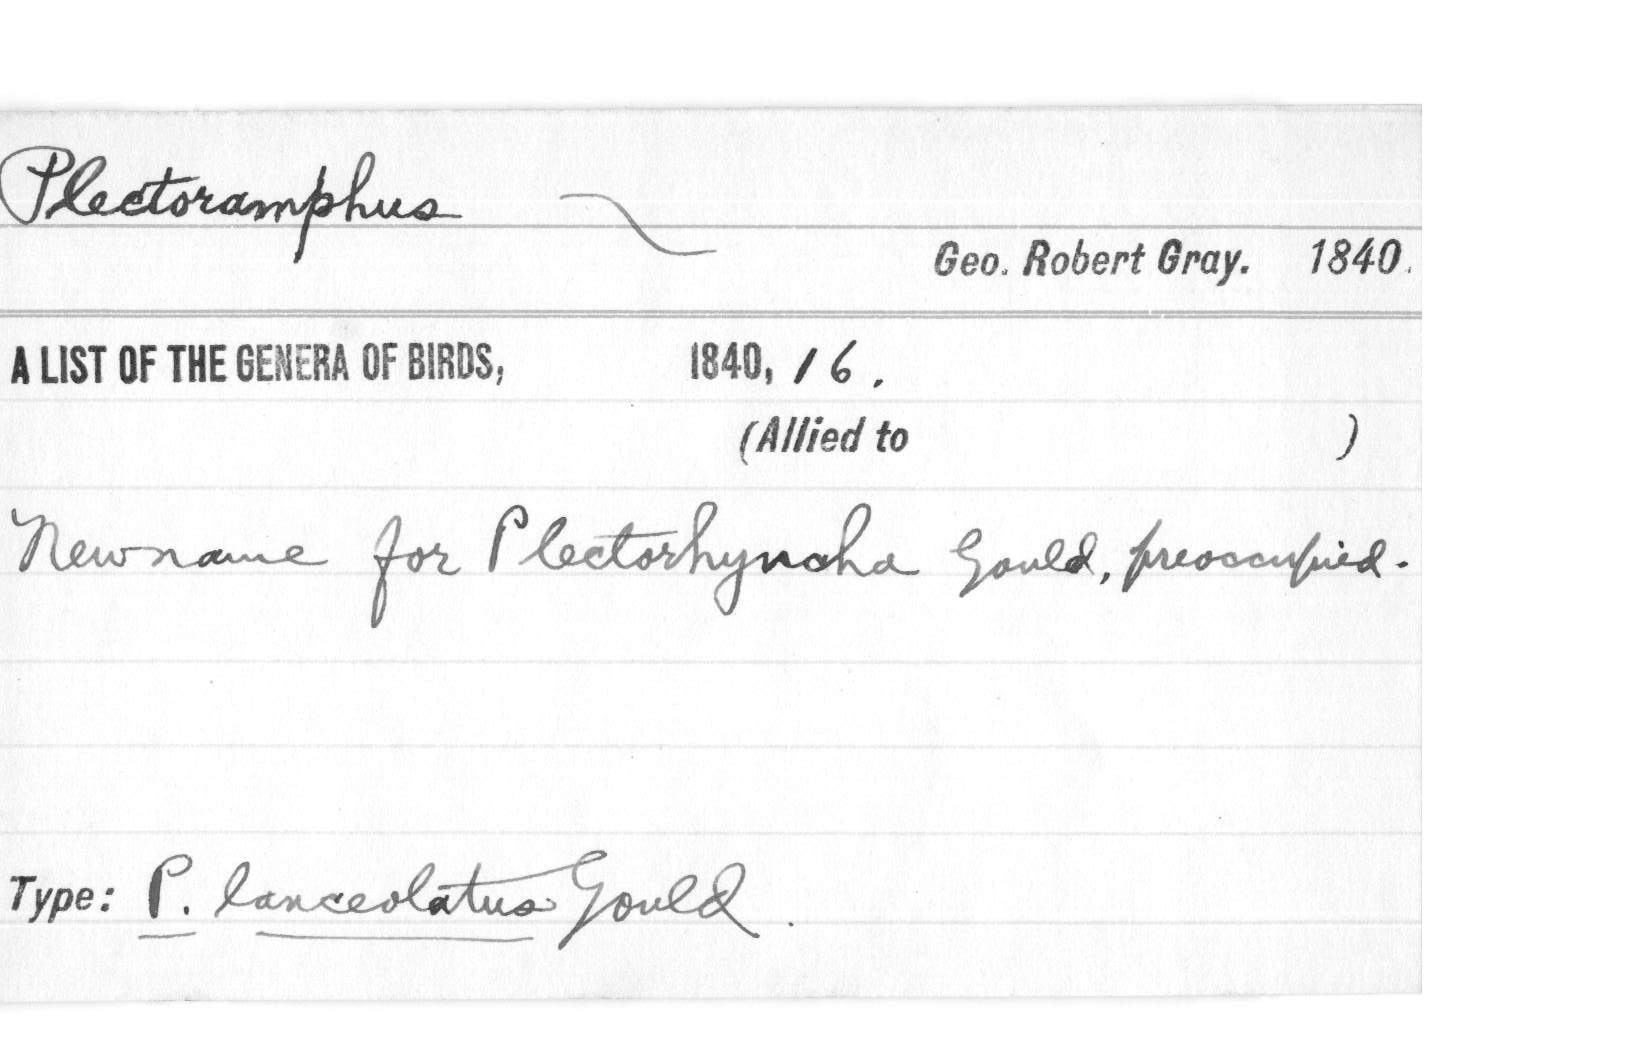 Plectoramphus
Geo. Robert Gray. 1840.
A LIST OF THE GENERA OF BIRDS, 1840, 16.
(Allied to )
New name for Plectorhyncha Gould, preoccupied.
Type: P. lanceolatus Gould.